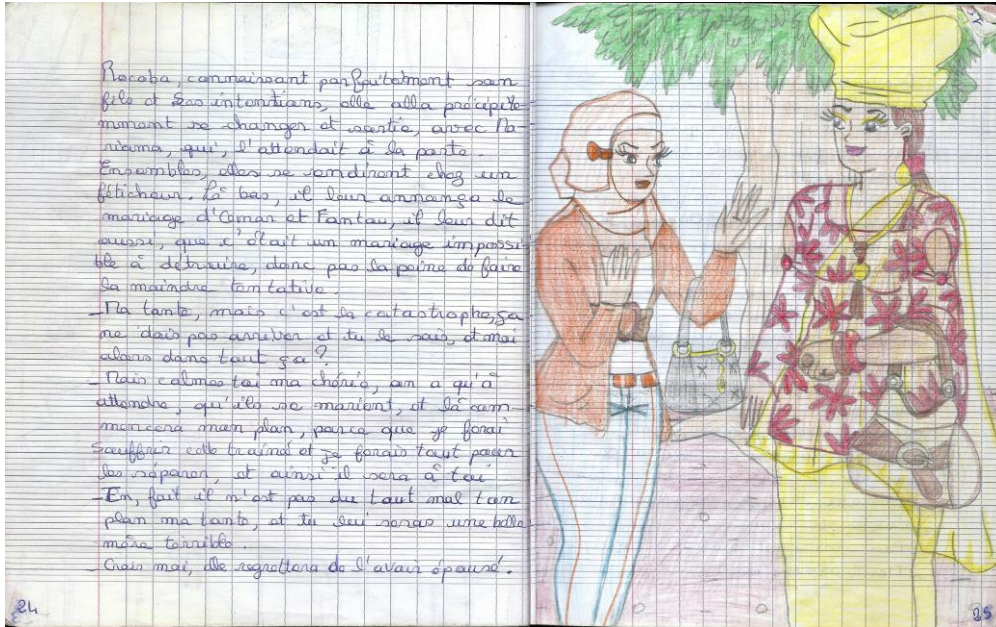 Rocoba, connaissant parfaitement son
fils et ses intentions, elle alla précipite-
mment se changer et sortie, avec Ma-
riama, qui, l'attendait à la porte.
Ensembles, elles se rendirent chez un
féticheur. Là bas, il leur annonça le
mariage d'Oumar et Fantou, il leur dit
aussi, que c'était un mariage impossi
ble à détruire, donc pas la peine de faire
la moindre tentative.
_ Ma tante, mais c'est la catastrophe, ça
ne dois pas arriver et tu le sais, et moi
alors dans tout ça ?
_ Mais calmes toi ma chérie, on a qu'à
attendre, qu'ils se marient, et là com-
mencera mon plan, parce que je ferai
souffrir cette trainé et je ferais tout pour
les séparer, et ainsi il sera à toi
_ En, fait il n'est pas du tout mal ton
plan ma tante, et tu lui seras une belle
mère terrible.
_ Crois moi, elle regrettera de l'avoir épousé.
24
25